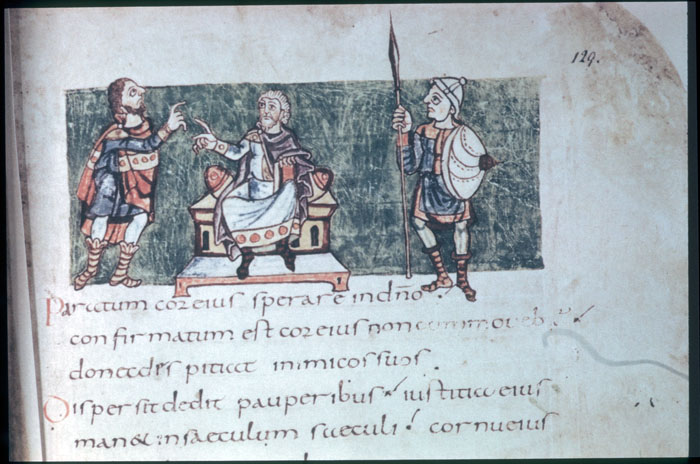 129.
Paratum cor eius sperare in dno
confirmatum est cor eius non commoveb
donec despiciat inimicos suos.
Dispersit dedit pauperibus iustitia eius
man& in saeculum saeculi cornu eius